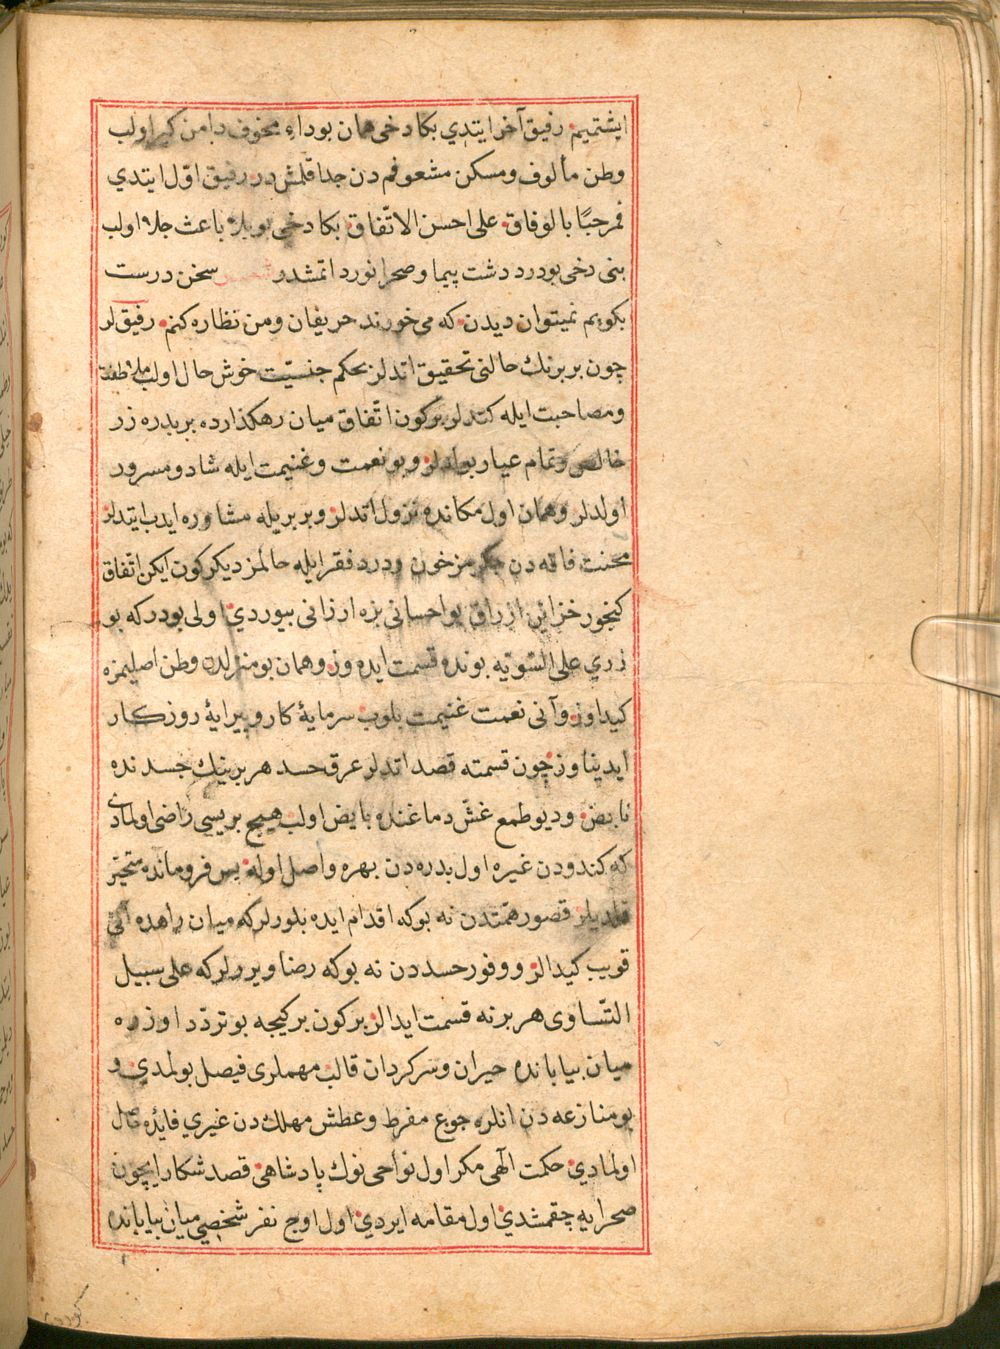 ايشتميم رفيق آخر ايتدي بكا دخی همان بو داء مخوف دامن كير اولب
وطن مألوف ومسكن مشعوفم دن جدا قلمش در رفيق اوّل ايتدي
فمرحبًا بالوفاق على احسن الاتّفاق بكا دخی بو بلا باعث جلا اولب
بنی دخی بو درد دشت پيما وصحرا نورد اتمشدر سخن درست
بكويم نميتوان ديدن كه می خورند حريفان ومن نظاره كنم رفيق لر
چون بر برنك حالنی تحقيق اتدلر بحكم جنسيّت خوش حال اولب ملاطفت
ومصاحبت ايله كتدلر بر كون اتّفاق ميان رهكذارده بر بدره زر
خالص وتمام عيار بولدلر وبو نعمت وغنيمت ايله شاد ومسرور
اولدلر وهمان اول مكانده نزول اتدلر وبر بريله مشاوره ايدب ايتدلر
محنت فاقه دن جكرمز خون ودرد فقر ايله حالمز ديكركون ايكن اتفاق
كنجور خزاين ارزاق بو احسانی بزه ارزانی بيوردي اولی بودركه بو
زري على السّويّه بونده قسمت ايده وز وهمان بو منزلدن وطن اصليمزه
كيداوز وآنی نعمت غنيمت بلوب سرمايۀ كار وپيرايۀ روزكار
ايدیناوز چون قسمته قصد اتدلر عرق حسد هر برينك جسدنده
نابض وديو طمع غشّ دماغنده بايض اولب هيچ بريسی راضی اولمادی
كه كندودن غيره اول بدره دن بهره واصل اوله بس فرومانده متحيّر
قلديلر قصور همتدن نه بوكه اقدام ايده بلورلركه ميان راهده آنی
قويب كيدالر ووفور حسد دن نه بوكه رضا ويررلركه علی سبيل
التّساوی هر برنه قسمت ايدالر بر كون بر كيجه بو تردّد اوزره
ميان بياباند‌ه حيران وسركردان قالب مهملری فيصل بولمدي و
بو منازعه دن انلره جوع مفرط وعطش مهلك دن غيري فايده
اولمادي حكمت الٓهی مكر اول نواحی نوك پادشاهی قصد شكار ايچون
صحرايه چقمشدي اول مقامه ايردي اول اوج نفر شخصی ميان بياباند‌ه